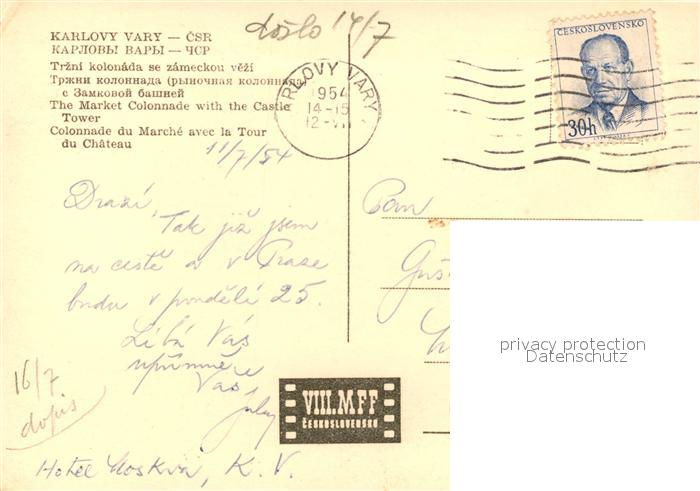 došlo 14/7
KARLOVY VARY — ČSR
КАРЛОВЫ ВАРЫ — ЧСР
Tržní kolonáda se zámeckou věží
Тржни колоннада (рыночная колоннада)
с Замковой башней
The Market Colonnade with the Castle
Tower
Colonnade du Marché avec la Tour
du Château
RLOVY VARY
1954
14-15
12-VII
ČESKOSLOVENSKO
30h
11/7/54
Drazí,
Tak již jsem
na cestě a v Praze
budu v pondělí 25.
Líbá Vás
upřímně
Vás
16/7
dopis
Hotel Moskva, K. V.
Pan
VIII.MFF
ČESKOSLOVENSKO
privacy protection
Datenschutz